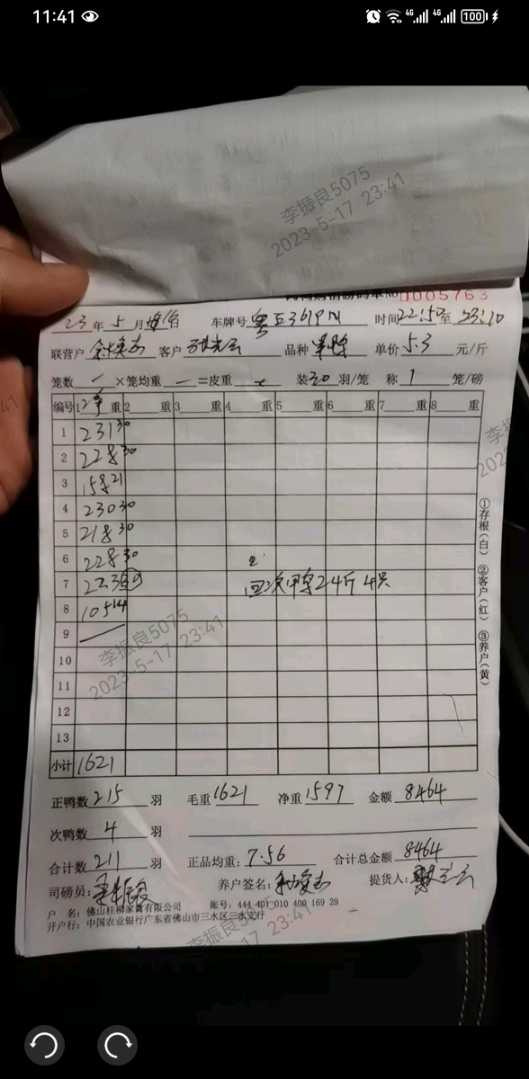 11:41
4G 4G 100
李振良5075
2023-5-17 23:41
№0005763
23年5月 日 车牌号 粤E 361PM 时间22:50至23:10
联营户 客户 品种 单价5.3元/斤
笼数 一 ×笼均重 一 =皮重 装30羽/笼 称1笼/磅
编号 1 重 2 重 3 重 4 重 5 重 6 重 7 重 8 重
1 231 30
2 228 30
3 158 21
4 230 30
5 218 30
6 228 30
7 223
回 24斤4只
8 105 14
9
10
11
12
13
小计 1621
①存根(白) ②客户(红) ③养户(黄)
李振良5075
2023-5-17 23:41
正鸭数215羽 毛重1621 净重1597 金额8464
次鸭数4羽
合计数211羽 正品均重:7.56 合计总金额8464
司磅员: 养户签名: 提货人:
户 名:佛山桂柳家禽有限公司 账号:444 401 010 400 169 28
开户行:中国农业银行广东省佛山市三水区三水支行